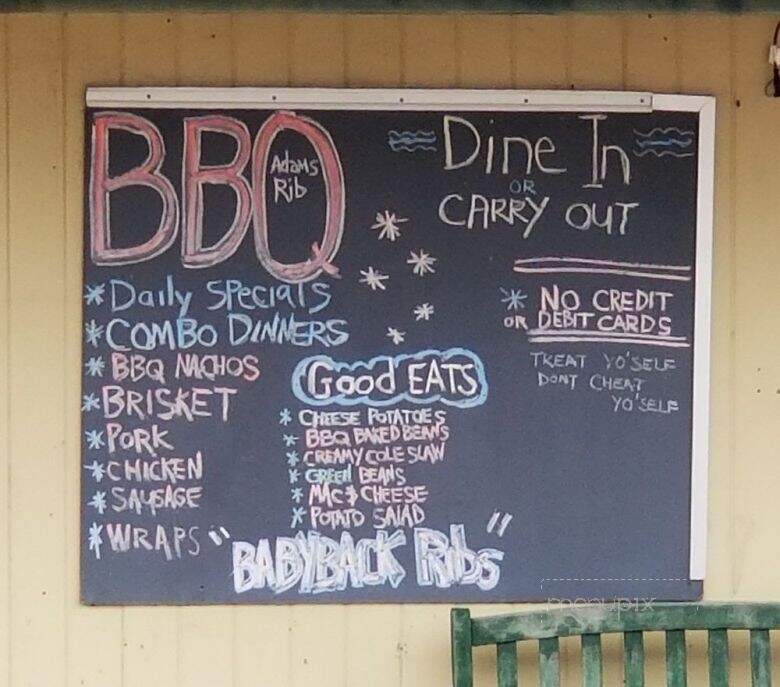 BBQ
Adams
Rib
Dine In
OR
CARRY OUT
* Daily SPECIALS
* COMBO DINNERS
* BBQ NACHOS
* BRISKET
* PORK
* CHICKEN
* SAUSAGE
* WRAPS
Good EATS
* CHEESE POTATOES
* BBQ BAKED BEANS
* CREAMY COLE SLAW
* GREEN BEANS
* MAC & CHEESE
* POTATO SALAD
"BABYBACK RibS"
* NO CREDIT
OR DEBIT CARDS
TREAT YO'SELF
DONT CHEAT
YO'SELF
menupix